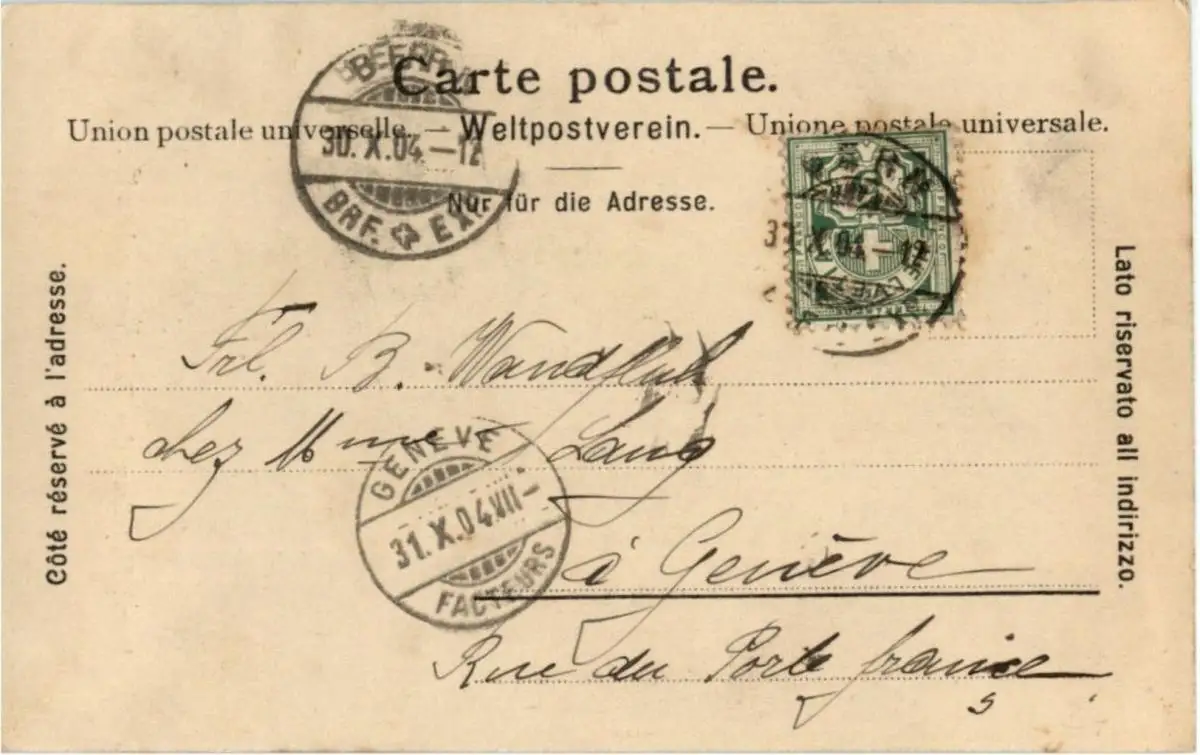 Carte postale.
Union postale universelle. — Weltpostverein. — Unione postale universale.
Nur für die Adresse.
BERN
30. X. 04. —12
BRF. EXP.
BERN
X. 04 —12
HELVETIA
Côté réservé à l'adresse.
Lato riservato all indirizzo.
Frl. B. Wandfluh
chez Mme Lang
GENÈVE
31. X. 04 VII—
FACTEURS
à Genève
Rue du Porte